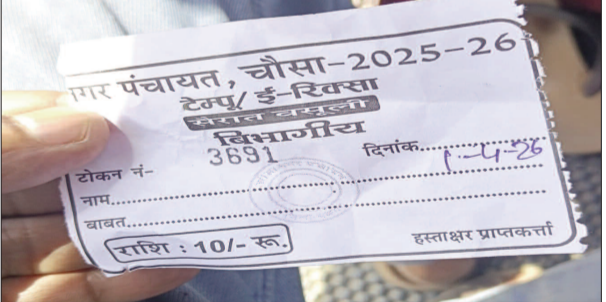 नगर पंचायत, चौसा-2025-26
टेम्पू/ ई-रिक्सा
खैरात वसूली
बिभागीय
टोकन नं- 3691 दिनांक.....1-4-26
नाम.....
बाबत.....
राशि : 10/- रू.
हस्ताक्षर प्राप्तकर्त्ता